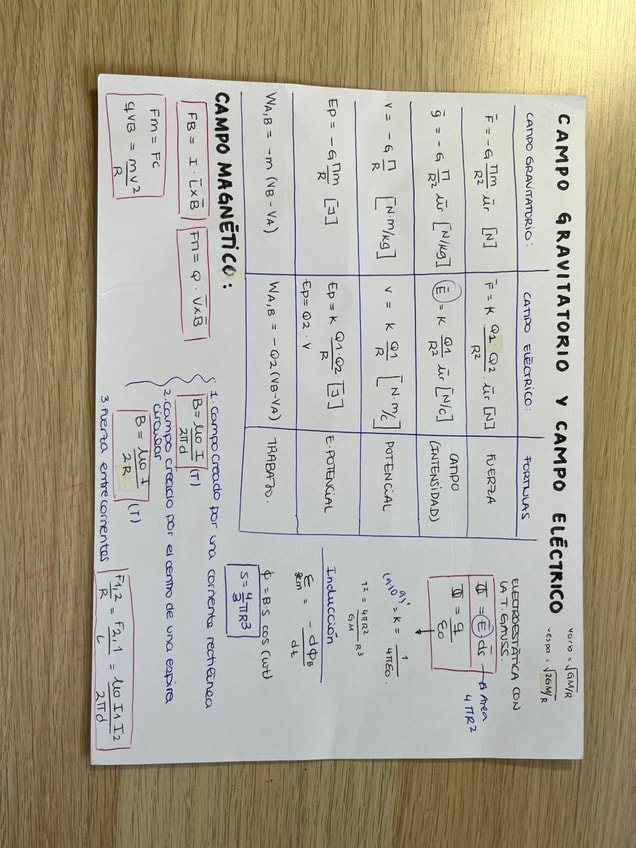 CAMPO GRAVITATORIO Y CAMPO ELÉCTRICO
vorb = √GM/R
vespa = √2GM/R
CAMPO GRAVITATORIO: CAMPO ELÉCTRICO: FORMULAS
F̄ = -G Mm/R² ūr [N] F̄ = K Q1 Q2/R² ūr [N] FUERZA
ḡ = -G M/R² ūr [N/kg] Ē = K Q1/R² ūr [N/C] CAMPO (INTENSIDAD)
V = -G M/R [N·m/kg] V = K Q1/R [N·m/C] POTENCIAL
Ep = -G Mm/R [J] Ep = K Q1·Q2/R [J] E. POTENCIAL
Ep = Q2 · V
WA,B = -m (VB - VA) WA,B = -Q2 (VB-VA) TRABAJO.
ELECTROESTÁTICA CON
LA T. GAUSS.
Φ = Ē ds̄ → Area
4πR²
Φ = q/εo
(9·10⁹) = K = 1/4πεo
T² = 4πR²/GM R³
Inducción
ε = - dΦB/dt
Φ = B S cos (ωt)
S = 4/3 πR³
CAMPO MAGNÉTICO:
FB = I · L̄xB̄
FM = Q · V̄xB̄
Fm = Fc
qVB = mv²/R
1. campo creado por una corriente rectilínea
B = μo I/2πd (T)
2. campo creado por el centro de una espira
circular
B = μo I/2R (T)
3 Fuerza entre corrientes
F1,2/R = F2,1/L = μo I1 I2/2πd